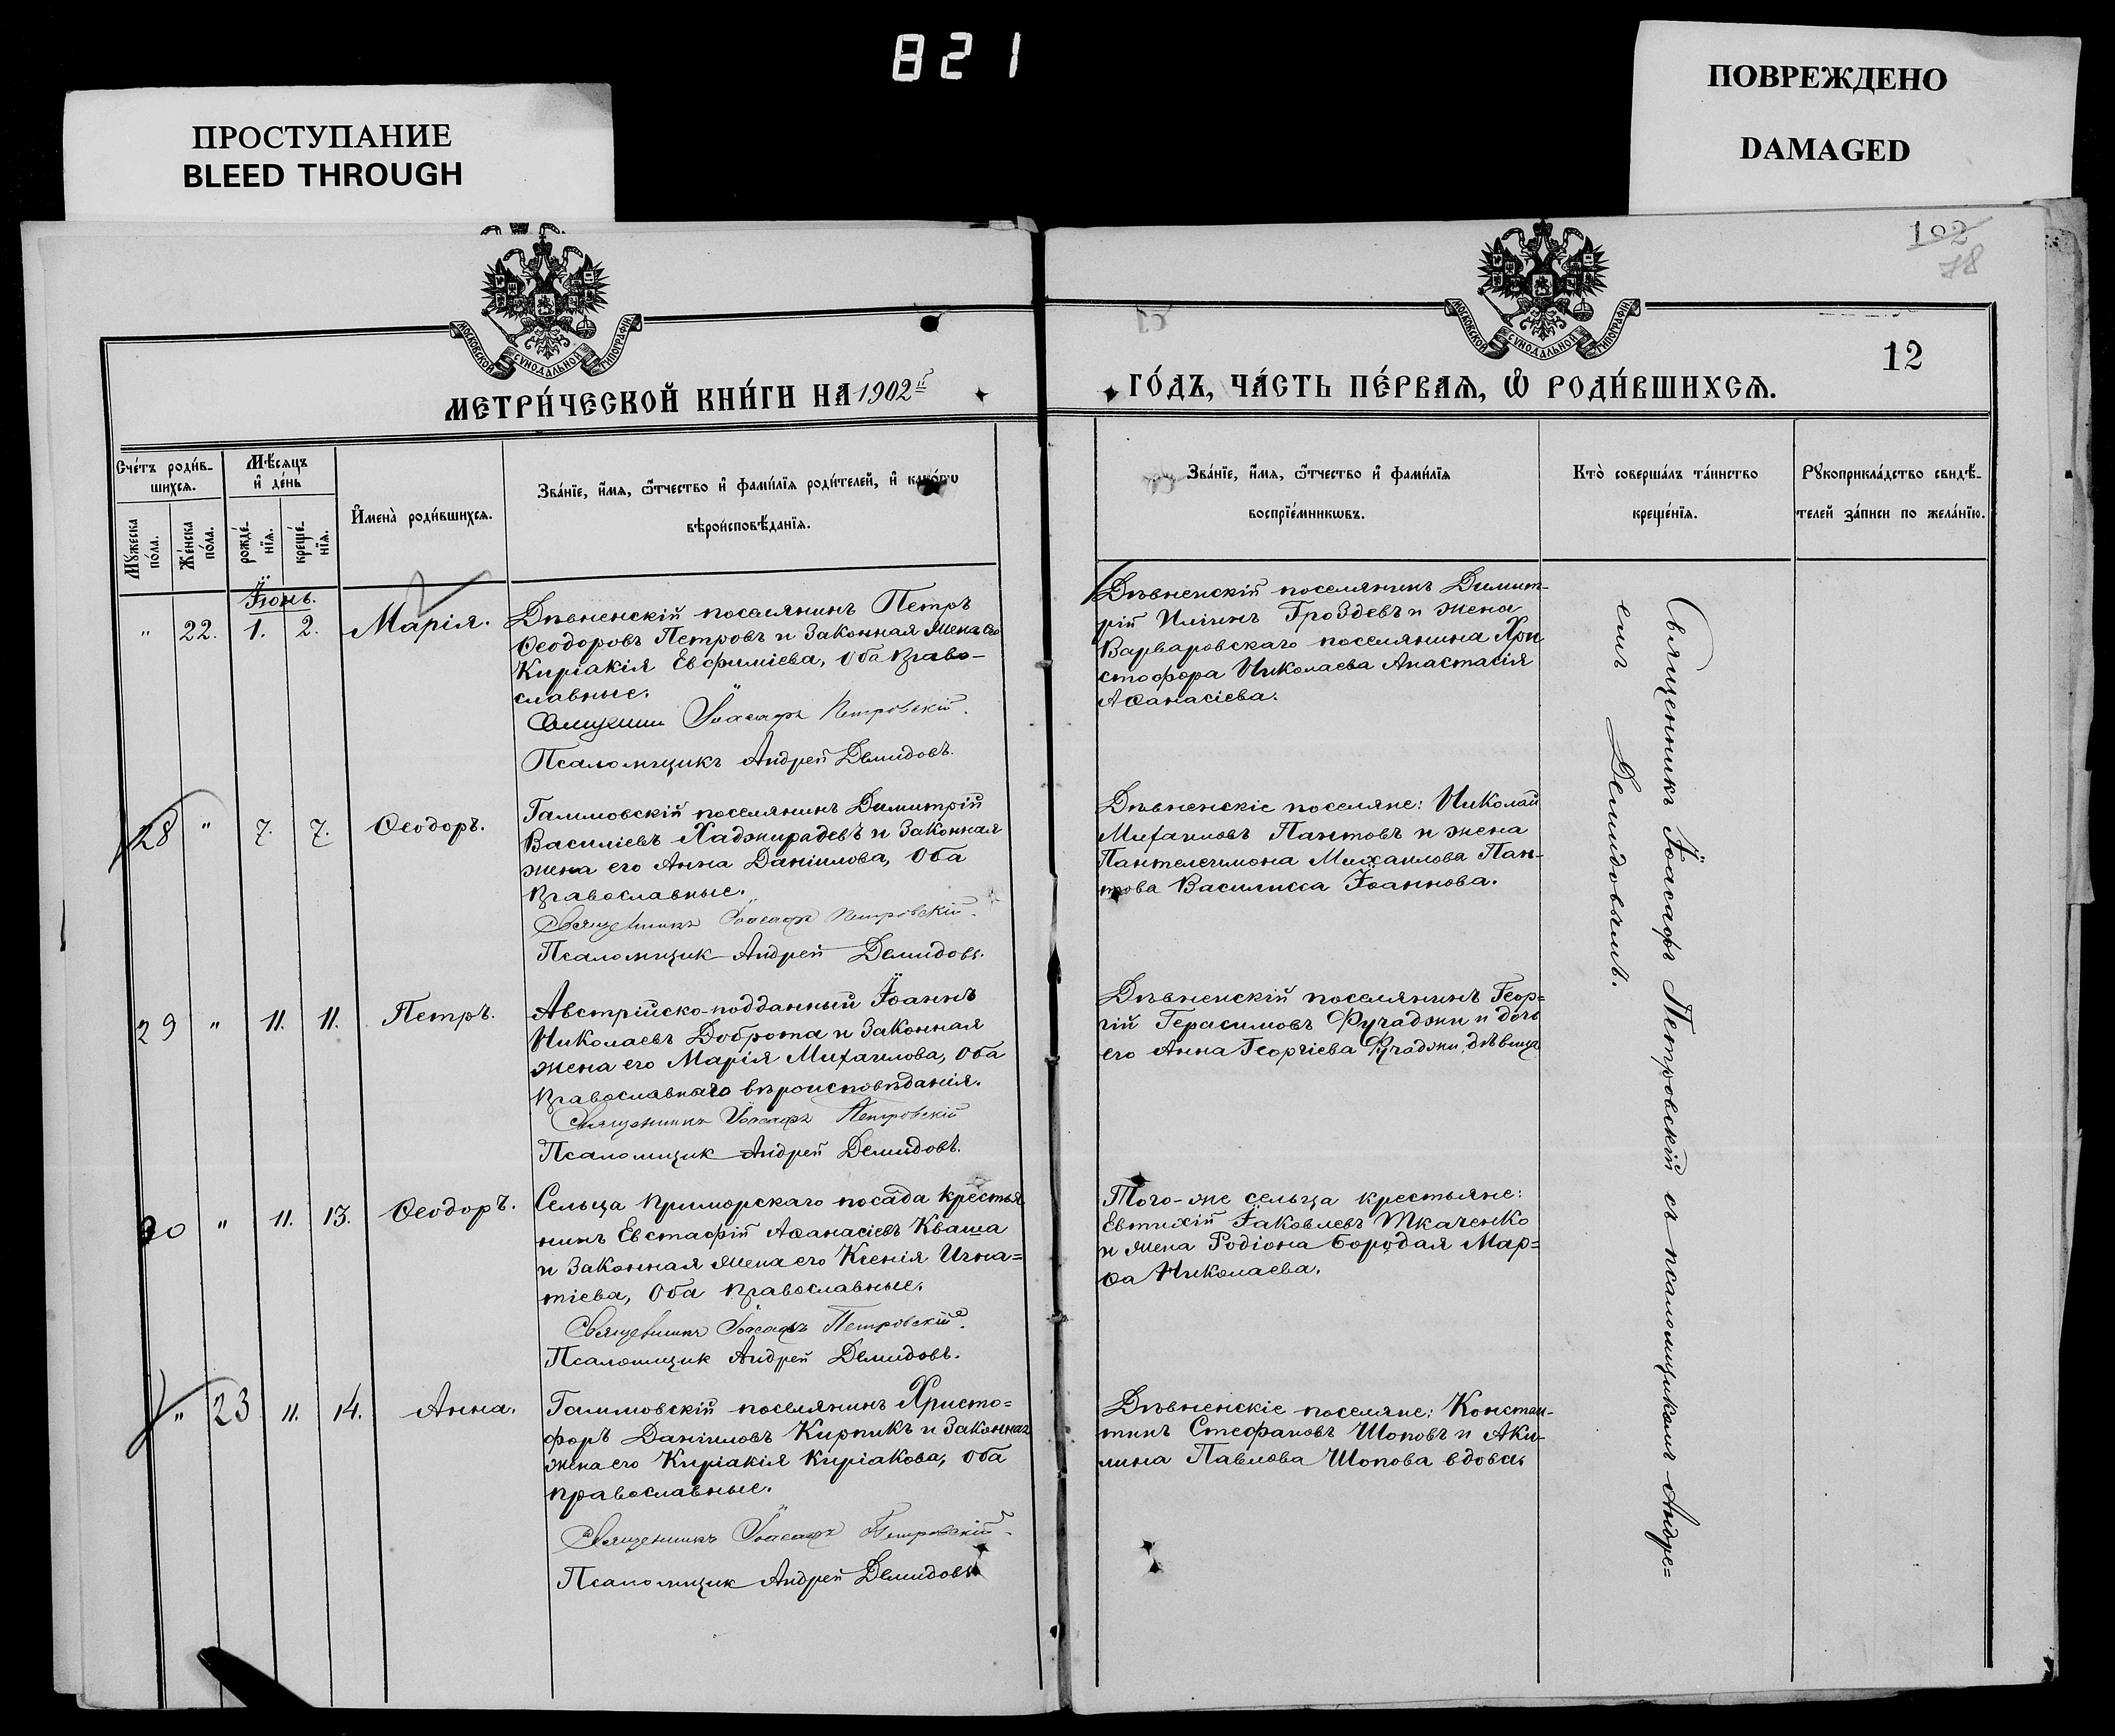 821
ПРОСТУПАНИЕ
BLEED THROUGH
ПОВРЕЖДЕНО
DAMAGED
102
78
МОСКОВСКОЙ СѴНОДАЛЬНОЙ ТИПОГРАФІИ
МОСКОВСКОЙ СѴНОДАЛЬНОЙ ТИПОГРАФІИ
12
МЕТРИ́ЧЕСКОЙ КНИ́ГИ НА 1902й
ГО́ДЪ, ЧА́СТЬ ПЕ́РВАѦ, Ѡ҆ РОДИ́ВШИХСѦ.
Сче́тъ роди́в-
шихсѧ.
Мꙋ́жеска
по́ла.
Же́нска
по́ла.
Мѣ́сѧцъ
и҆ де́нь
рожде́-
нїѧ.
креще́-
нїѧ.
И҆мена̀ роди́вшихсѧ.
Зва́нїе, и҆́мѧ, ѻ҆́тчество и҆ фами́лїѧ роди́телей, и҆ како́гѡ
вѣроисповѣ́данїѧ.
Зва́нїе, и҆́мѧ, ѻ҆́тчество и҆ фами́лїѧ
воспрїе́мникѡвъ.
Кто̀ соверша́лъ та́инство
креще́нїѧ.
Рꙋкоприкла́дство свидѣ́-
телей за́писи по жела́нїю.
Іюнь.
" 22. 1. 2. Марія.
Дѣвненскій поселянинъ Петръ
Ѳеодоровъ Петровъ и законная жена его
Киріакія Евфиміева, оба право-
славные.
Священникъ Іоасафъ Петровскій.
Псаломщикъ Андрей Демидовъ.
Дѣвненскій поселянинъ Димит-
рій Иліинъ Гроздевъ и жена
Варваровскаго поселянина Хри
стофора Николаева Анастасія
Аѳанасіева.
Священникъ Іоасафъ Петровскій съ псаломщикомъ Андре=
емъ Демидовымъ.
28 " 7. 7. Ѳеодоръ.
Галиловскій поселянинъ Димитрій
Василіевъ Хаджирадевъ и законная
жена его Анна Даніилова, оба
православные.
Священникъ Іоасафъ Петровскій.
Псаломщик Андрей Демидовъ.
Дѣвненскіе поселяне: Николай
Михаиловъ Пантовъ и жена
Пантелеимона Михаилова Пан-
това Василисса Іоаннова.
29 " 11. 11. Петръ.
Австрійско-подданный Іоаннъ
Николаевъ Доброта и законная
жена его Марія Михаилова, оба
православнаго вѣроисповѣданія.
Священникъ Іоасафъ Петровскій
Псаломщик Андрей Демидовъ.
Дѣвненскій поселянинъ Геор=
гій Герасимовъ Фучаджи и дочь
его Анна Георгіева Фучаджи, дѣвица
30 " 11. 13. Ѳеодоръ.
Сельца Приморскаго посада крестья
нинъ Евстафій Аѳанасіевъ Кваша
и законная жена его Ксенія Игна=
тіева, оба православные.
Священникъ Іоасафъ Петровскій.
Псаломщик Андрей Демидовъ.
Того-же сельца крестьяне:
Евтихій Іаковлевъ Ткаченко
и жена Родіона Бородая Мар=
ѳа Николаева.
" 23 11. 14. Анна.
Галиловскій поселянинъ Христо=
форъ Даніиловъ Кирпикъ и законная
жена его Киріакія Киріакова, оба
православные.
Священникъ Іоасафъ Петровскій.
Псаломщик Андрей Демидовъ
Дѣвненскіе поселяне: Констан-
тинъ Стефановъ Шоповъ и Аки-
лина Павлова Шопова вдова.